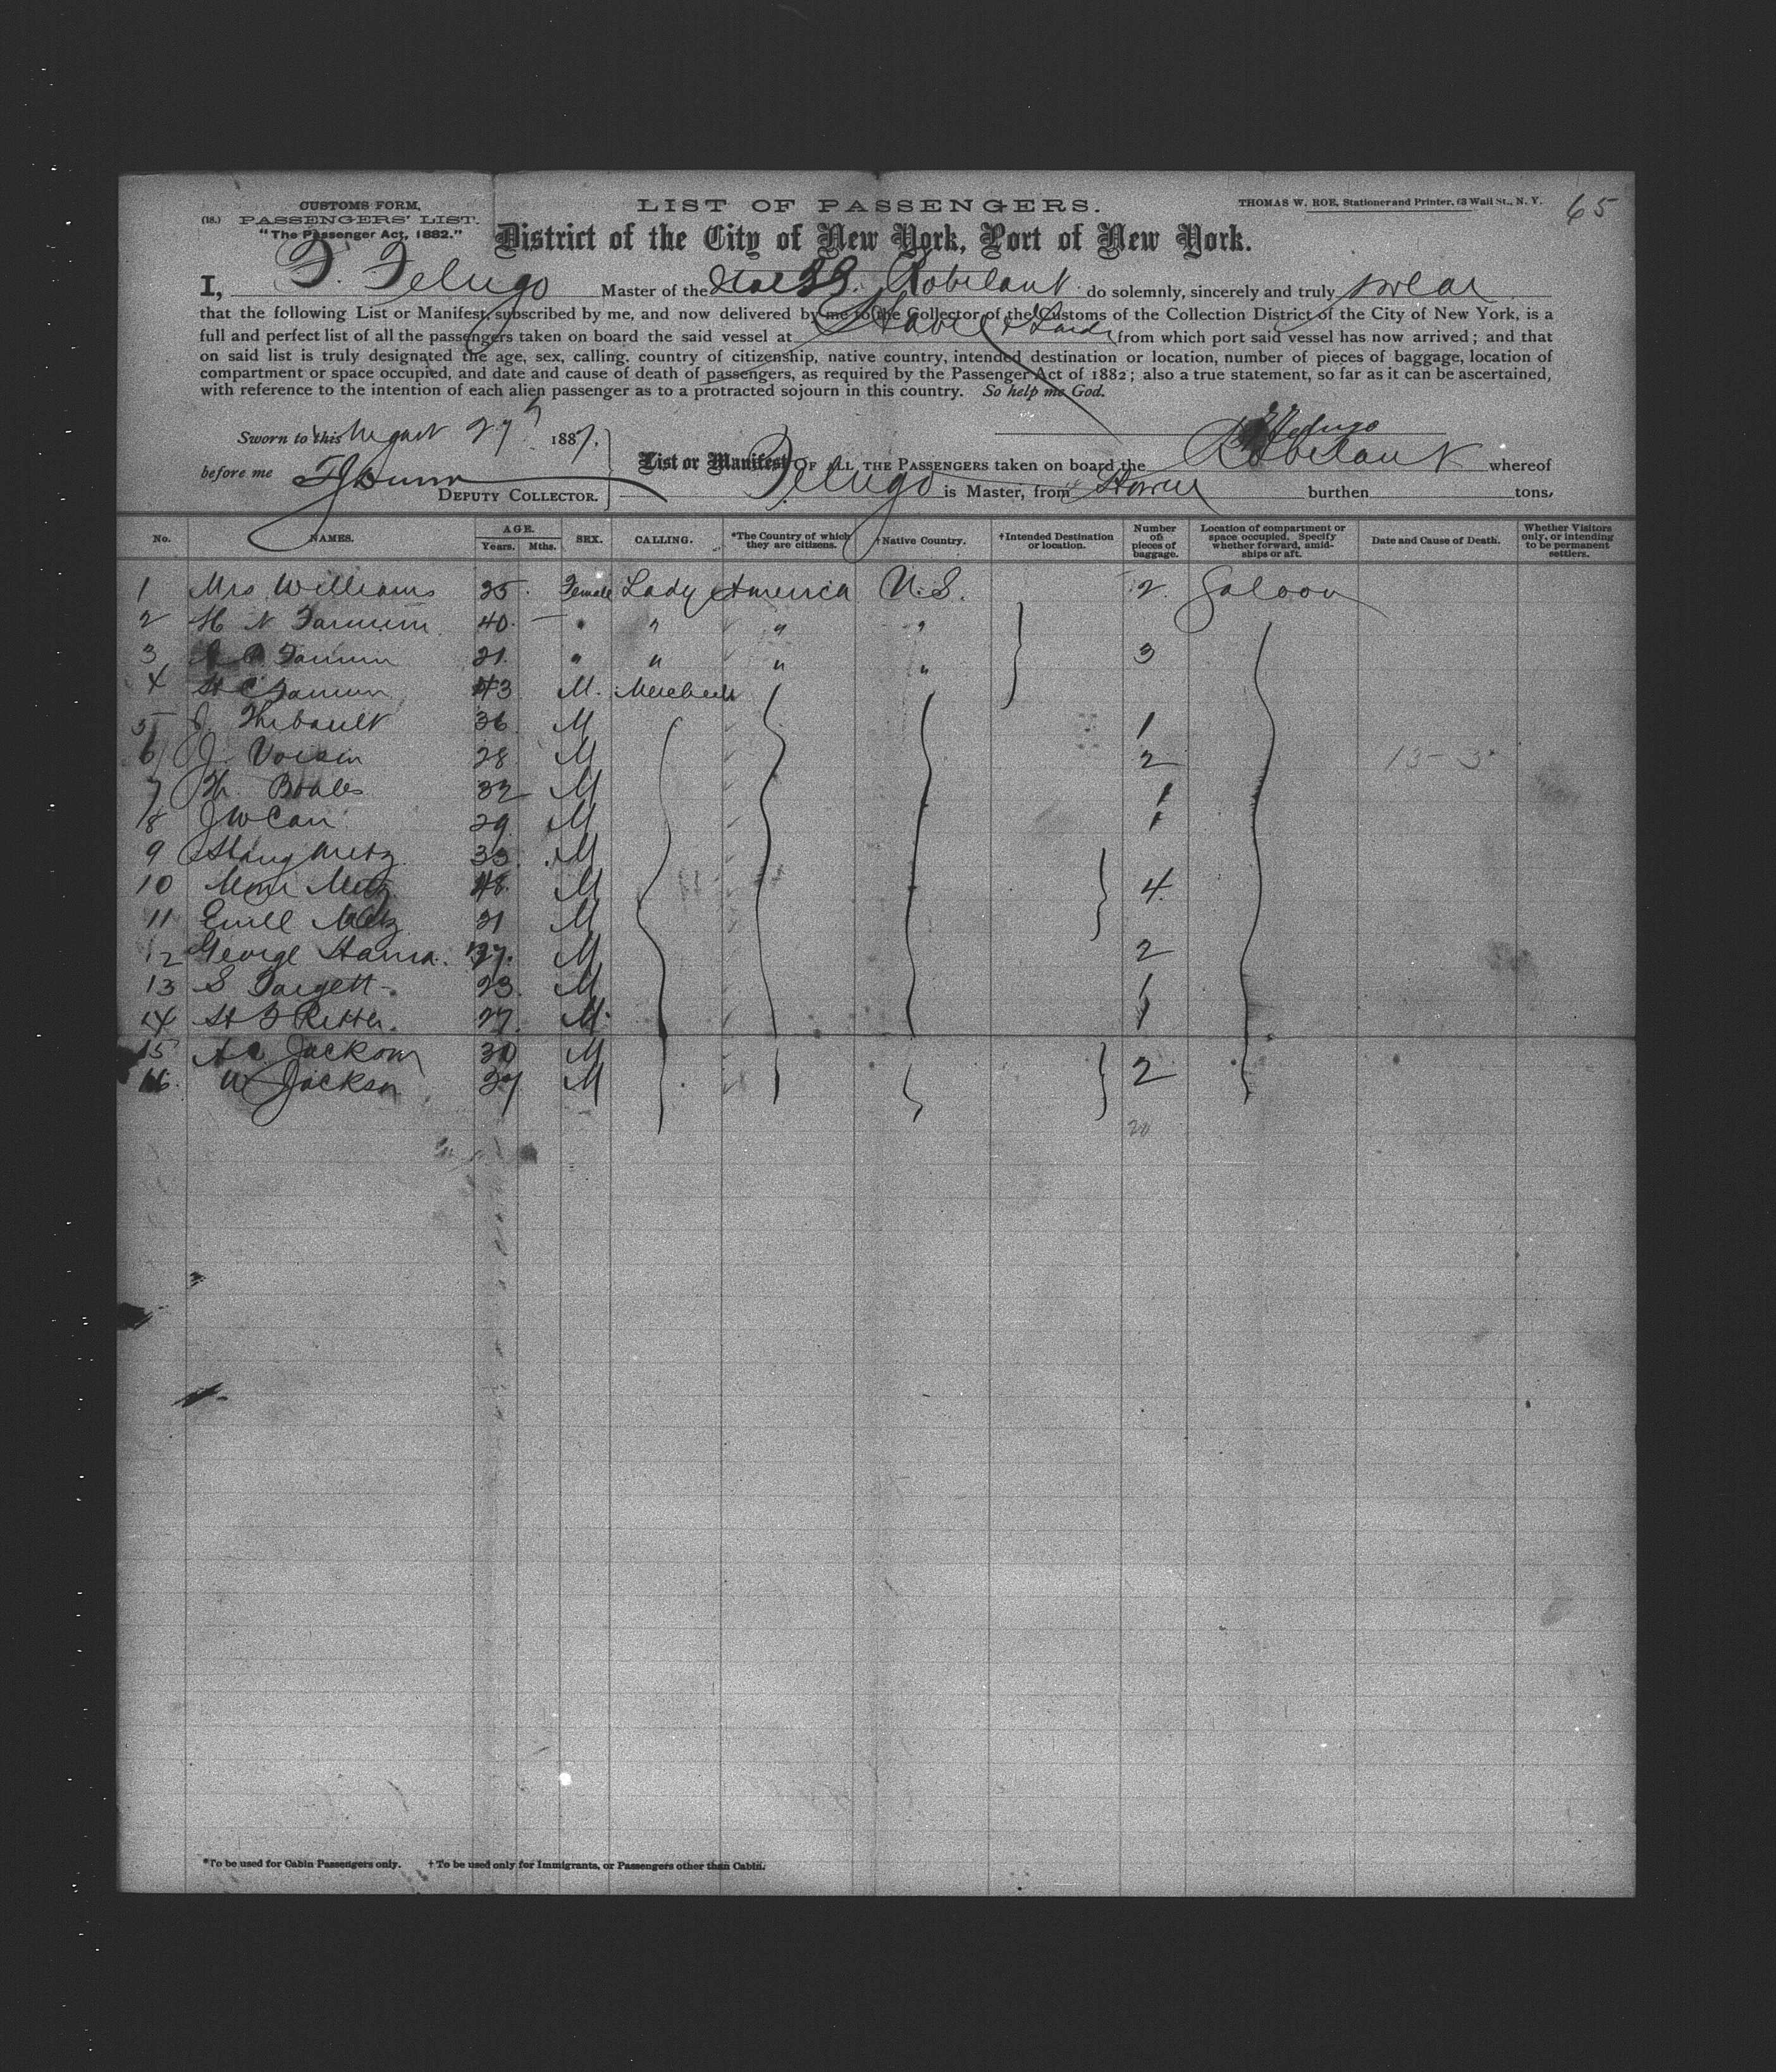 CUSTOMS FORM, LIST OF PASSENGERS. THOMAS W. ROE, Stationer and Printer, 63 Wall St., N. Y. 65
(18.) PASSENGERS' LIST.
"The Passenger Act, 1882." District of the City of New York, Port of New York.
I, Master of the SS. Robilant do solemnly, sincerely and truly swear
that the following List or Manifest, subscribed by me, and now delivered by me to the Collector of the Customs of the Collection District of the City of New York, is a
full and perfect list of all the passengers taken on board the said vessel at Havre from which port said vessel has now arrived; and that
on said list is truly designated the age, sex, calling, country of citizenship, native country, intended destination or location, number of pieces of baggage, location of
compartment or space occupied, and date and cause of death of passengers, as required by the Passenger Act of 1882; also a true statement, so far as it can be ascertained,
with reference to the intention of each alien passenger as to a protracted sojourn in this country. So help me God.
Sworn to this August 27 1887.
before me List or Manifest OF ALL THE PASSENGERS taken on board the Robilant whereof
DEPUTY COLLECTOR. is Master, from Havre burthen tons.
No. NAMES. AGE. Years. Mths. SEX. CALLING. *The Country of which they are citizens. †Native Country. †Intended Destination or location. Number of pieces of baggage. Location of compartment or space occupied. Specify whether forward, amidships or aft. Date and Cause of Death. Whether Visitors only, or intending to be permanent settlers.
1 Mrs Williams 35. Female Lady America U.S. 2. Saloon
2 H N 40. — " " " "
3 21. " " " " 3
4 H C 43 M.
5 J. Thibault 36 M 1
6 J. Voisin 28 M 2 13- 3
7 Th. 32 M 1
8 J W Carr 29 M 1
9 Metz. 33. M
10 Metz. 48. M 4.
11 Emile Metz. 21 M
12 George M 2
13 S Targett 23. M 1
14 Ritter. 27. M. 1
15 Jackson 30 M
16. W Jackson 37 M 2
20
*To be used for Cabin Passengers only. †To be used only for Immigrants, or Passengers other than Cabin.